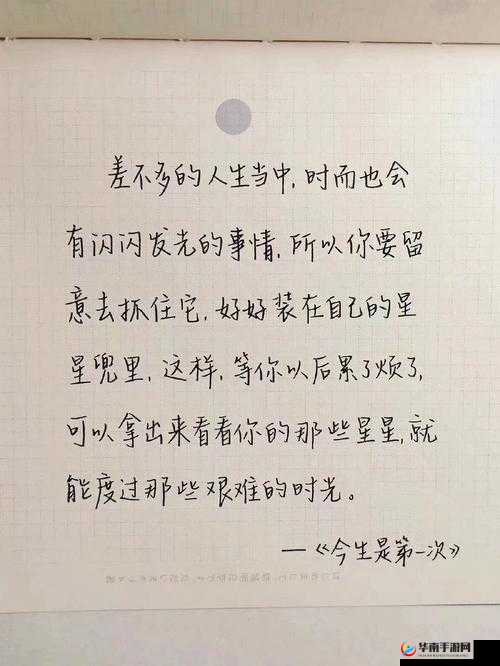 差不多的人生当中,时而也会
有闪闪发光的事情,所以你要留
意去抓住它,好好装在自己的星
星兜里,这样,等你以后累了烦了,
可以拿出来看看你的那些星星,就
能度过那些艰难的时光。
—《今生是第一次》
华南手游网